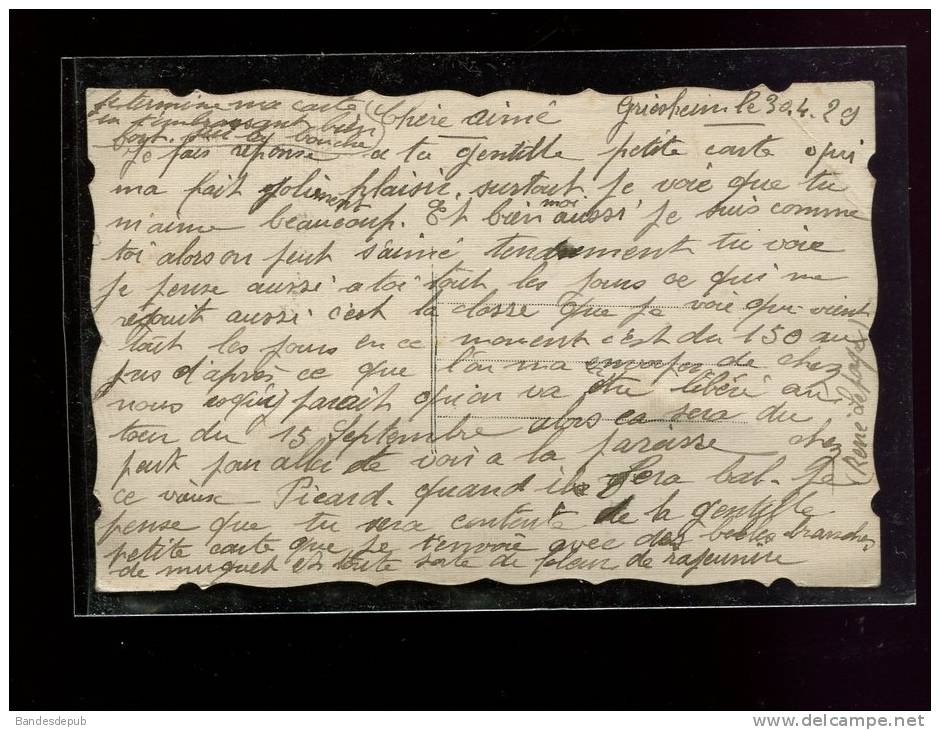 Griesheim le 30.4.29
Chère aimé
Je fais réponse a ta gentille petite carte qui
ma fait joliment plaisir. surtout je voie que tu
m'aime beaucoup. Et bien moi aussi je suis comme
toi alors on peut s'aimé tendrement tu voie
je pense aussi a toi tout les jours ce qui me
réjouit aussi c'est la classe que je voie qui vient
tout les jours en ce moment c'est du 150 au
jus d'après ce que l'on ma envoyer de chez
nous parait qu'on va être libéré au
tour du 15 Septembre alors ca sera du
peut pour allé de voir a la chez
ce vieux Picard. quand il fera bal. Je
pense que tu sera contente de la gentille
petite carte que je t'envoie avec des belles branches
de muguet et toute sorte de fleur de
Je termine ma carte
en t'embrassant bien
fort sur la bouche
(René de
Bandesdepub
www.delcampe.net